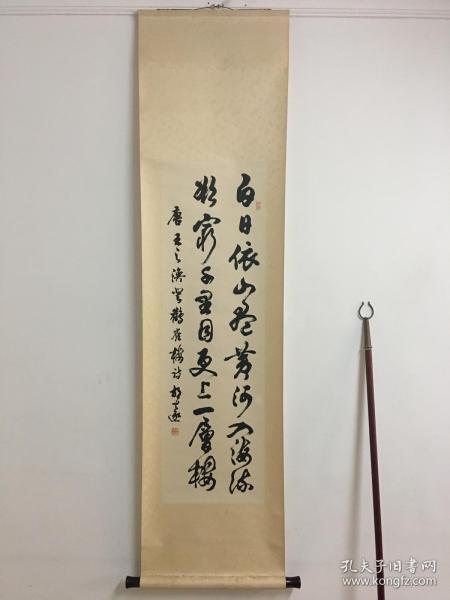 白日依山尽黄河入海流
欲穷千里目更上一层楼
唐王之涣登鹳雀楼诗
孔夫子旧书网
www.kongfz.com